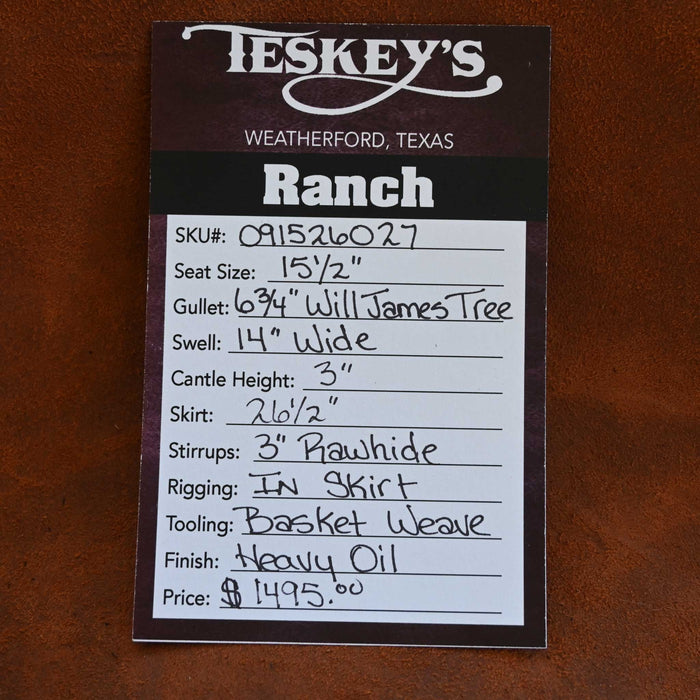 TESKEY'S
WEATHERFORD, TEXAS
Ranch
SKU#: 091526027
Seat Size: 15 1/2"
Gullet: 6 3/4" Will James Tree
Swell: 14" Wide
Cantle Height: 3"
Skirt: 26 1/2"
Stirrups: 3" Rawhide
Rigging: IN Skirt
Tooling: Basket Weave
Finish: Heavy Oil
Price: $1495.00